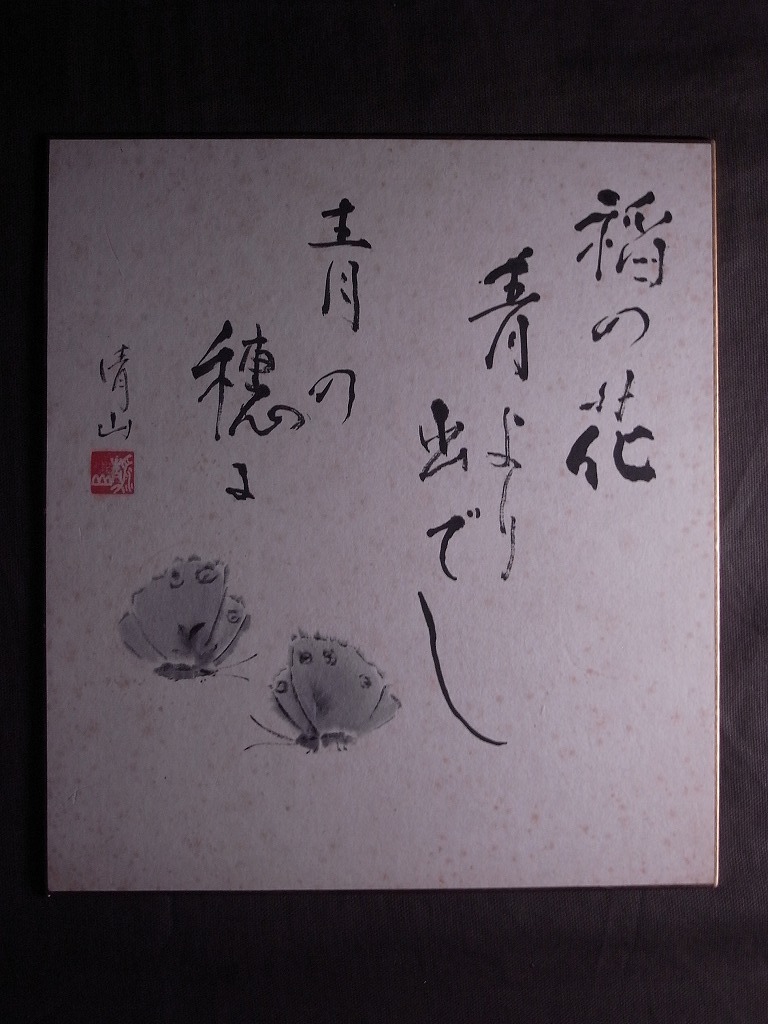 稲の花
青より
出でし
青の
穂に
清山